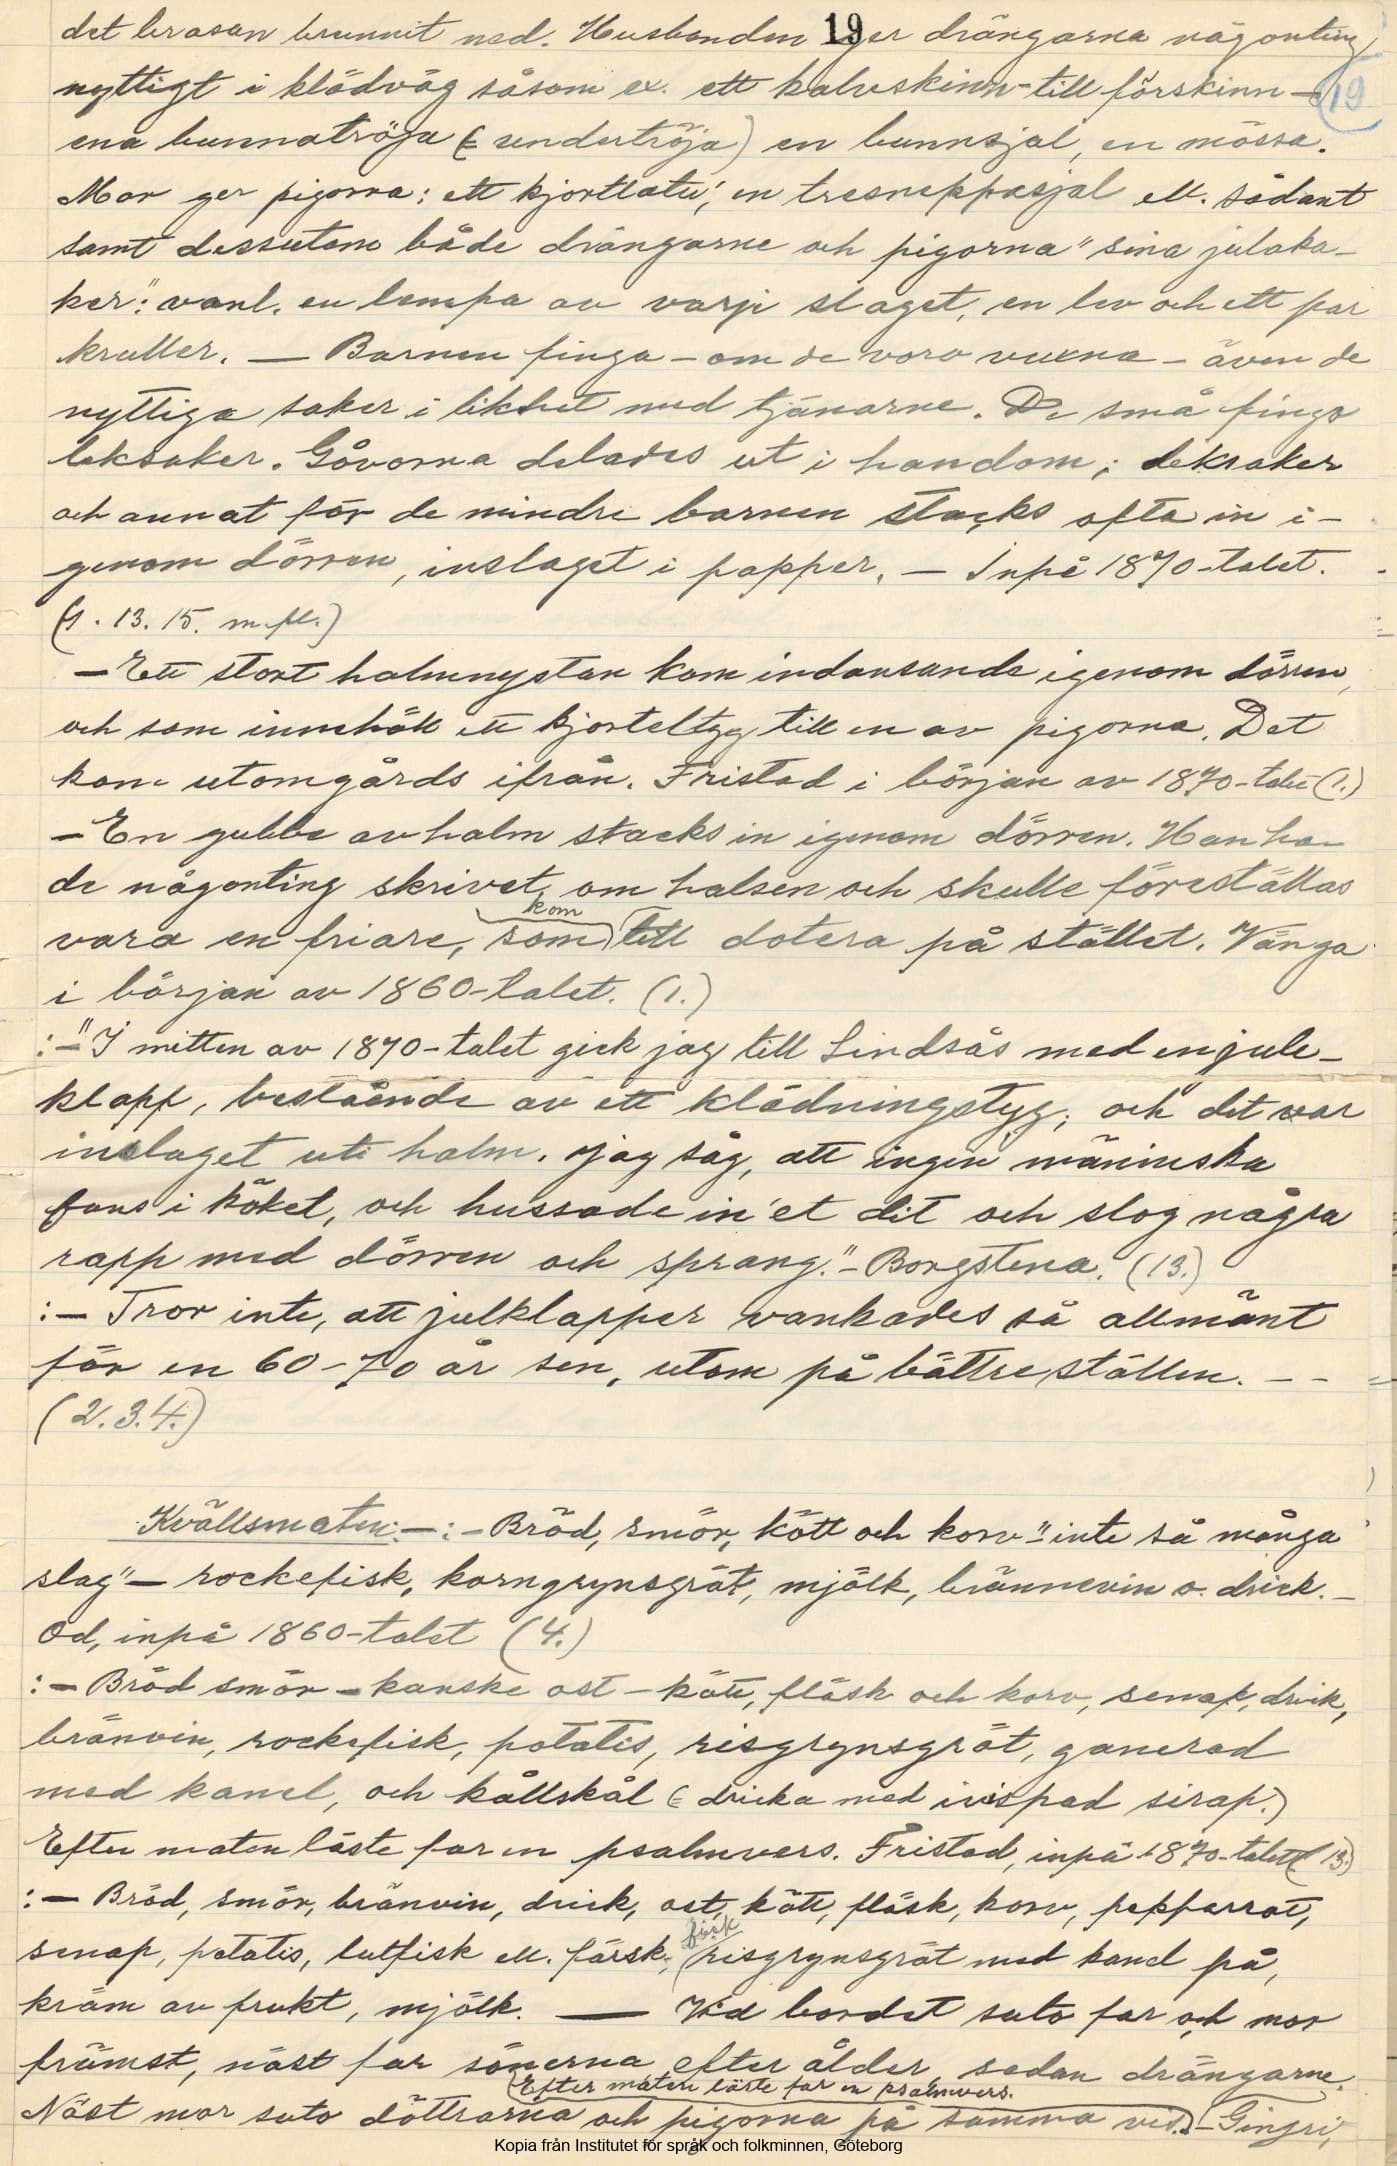 19
det brasan brunnit ned. Husbonden ger drängarna någonting
19
nyttigt i klädväg såsom ex. ett kalvskinn - till förskinn -
ena bunnatröja (= undertröja) en bunnsjal, en mössa.
Mor ger pigorna: ett kjortlatu', en tresneppasjal ell. sådant
samt dessutom både drängarne och pigorna "sina julaka-
ker": vanl. en lempa av varje slaget, en lev och ett par
kruller. — Barnen finga - om de voro vuxna - även de
nyttiga saker i likhet med tjänarne. De små fingo
leksaker. Gåvorna delades ut i handom; leksaker
och annat för de mindre barnen stacks ofta in i-
genom dörren, inslaget i papper. — Inpå 1870-talet.
(1. 13. 15. m.fl.)
— Ett stort halmnystan kom indansande igenom dörren,
och som innehöll ett kjorteltyg till en av pigorna. Det
kom utomgårds ifrån. Fristad i början av 1870-talet (1.)
— En gubbe av halm stacks in igenom dörren. Han ha-
de någonting skrivet om halsen och skulle föreställas
kom
vara en friare, som till dotera på stället. Vänga
i början av 1860-talet. (1.)
:- "I mitten av 1870-talet gick jag till Lindsås med en jule-
klapp, bestående av ett klädningstyg, och det var
inslaget uti halm. Jag såg, att ingen människa
fans i köket, och hussade in'et dit och slog några
rapp med dörren och sprang." - Borgstena. (13.)
:- Tror inte, att julklapper vankades så allmänt
för en 60-70 år sen, utom på bättre ställen. - -
(2. 3. 4.)
Kvällsmaten: - :- Bröd, smör, kött och korv - "inte så många
slag" - rockefisk, korngrynsgröt, mjölk, brännevin o. drick. -
Od, inpå 1860-talet (4.)
:- Bröd smör - kanske ost - kött, fläsk och korv, senap, drick,
bränvin, rockefisk, potatis, risgrynsgröt, garnerad
med kanel, och kållskål (= dricka med ivispad sirap.)
Efter maten läste far en psalmvers. Fristad, inpå 1870-talet (13.)
:- Bröd, smör, bränvin, drick, ost, kött, fläsk, korv, pepparrot,
fisk
senap, potatis, lutfisk ell. färsk, risgrynsgröt med kanel på,
kräm av frukt, mjölk. — Vid bordet suto far och mor
främst, näst far sönerna efter ålder, sedan drängarne.
Efter maten läste far en psalmvers.
Näst mor suto döttrarna och pigorna på samma vis. - Gingri,
Kopia från Institutet för språk och folkminnen, Göteborg